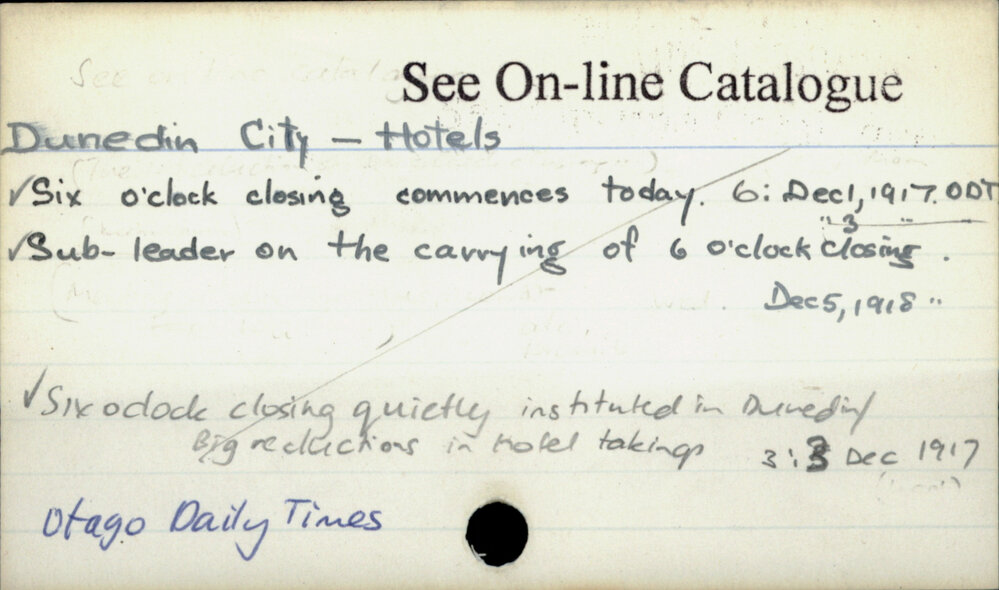 See On-line Catalogue
Dunedin City — Hotels
✓Six o'clock closing commences today. 6: Dec1, 1917. ODT
" 3 "
✓Sub-leader on the carrying of 6 o'clock closing.
Dec 5, 1918 "
✓Six oclock closing quietly instituted in Dunedin/
Big reductions in hotel takings 3: 3 Dec 1917
Otago Daily Times